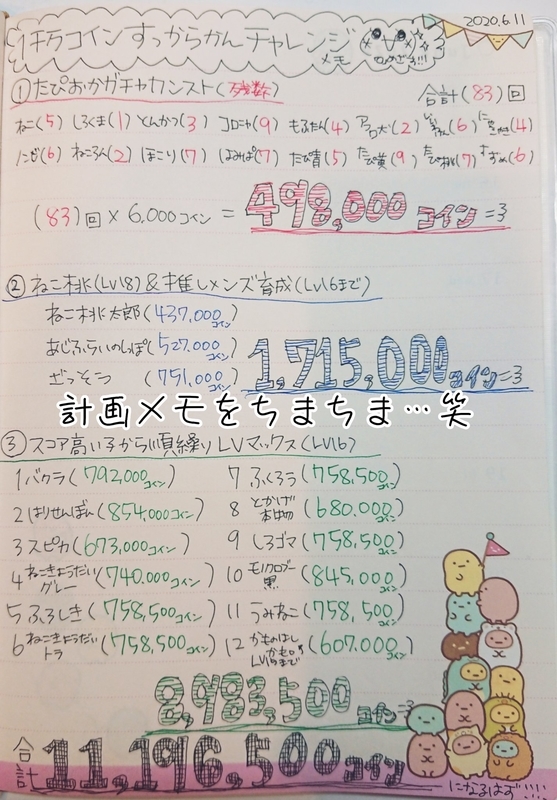 2020.6.11
1千万コインすっからかんチャレンジ
メモ
①たぴおかガチャカンスト(残数) 合計(83)回
ねこ(5) しろくま(1) とんかつ(3) コロニャ(9) もふたん(4) (2) (6) (4)
(6) ねころん(2) ほこり(7) はみぱ(7) たぴ青(5) たぴ黄(9) たぴ桃(7) すずめ(6)
(83)回×6,000コイン = 498,000コイン=3
②ねこ桃(LV18)&推しメンズ育成(LV16まで)
ねこ桃太郎(437,000コイン)
あじふらいのしっぽ(527,000コイン)
ざっそう (751,000コイン)
1,715,000コイン=3
計画メモをちまちま…笑
③スコア高い子から順繰りLVマックス(LV16)
1バクラ(792,000コイン) 7ふくろう(758,500コイン)
2はりせんぼん(854,000コイン) 8とかげ本物(680,000コイン)
3スピカ(673,000コイン) 9しろゴマ(758,500コイン)
4ねこきょうだいグレー(740,000コイン) 10モノクロブー黒(845,000コイン)
5ふろしき(758,500コイン) 11うみねこ(758,500コイン)
6ねこきょうだいトラ(758,500コイン) 12かものはしかも。LV15まで(607,000コイン)
8,983,500コイン=3
合計11,196,500コイン
になるはず!!!!